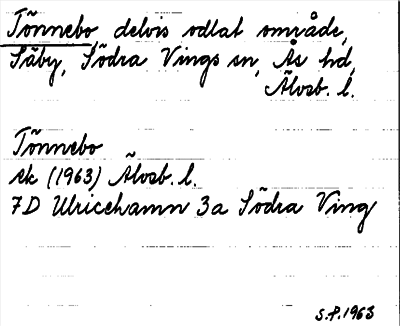 Tönnebo, delvis odlat område,
Säby, Södra Vings sn, Ås hd,
Älvsb. l.
Tönnebo
ek (1963) Älvsb. l.
7D Ulricehamn 3a Södra Ving
S.P.1963